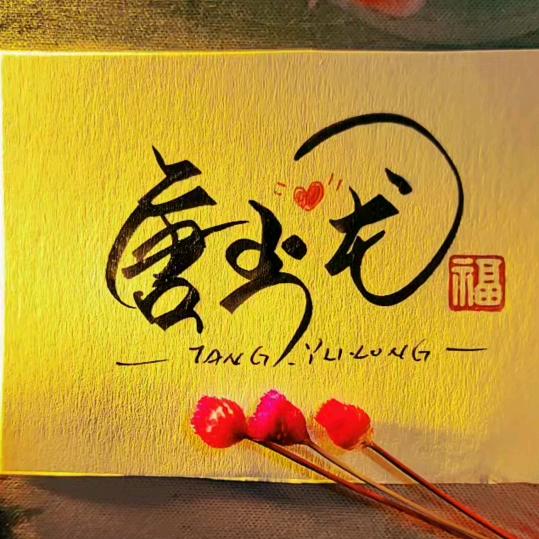 唐玉龙
福
— TANG.YU.LONG —